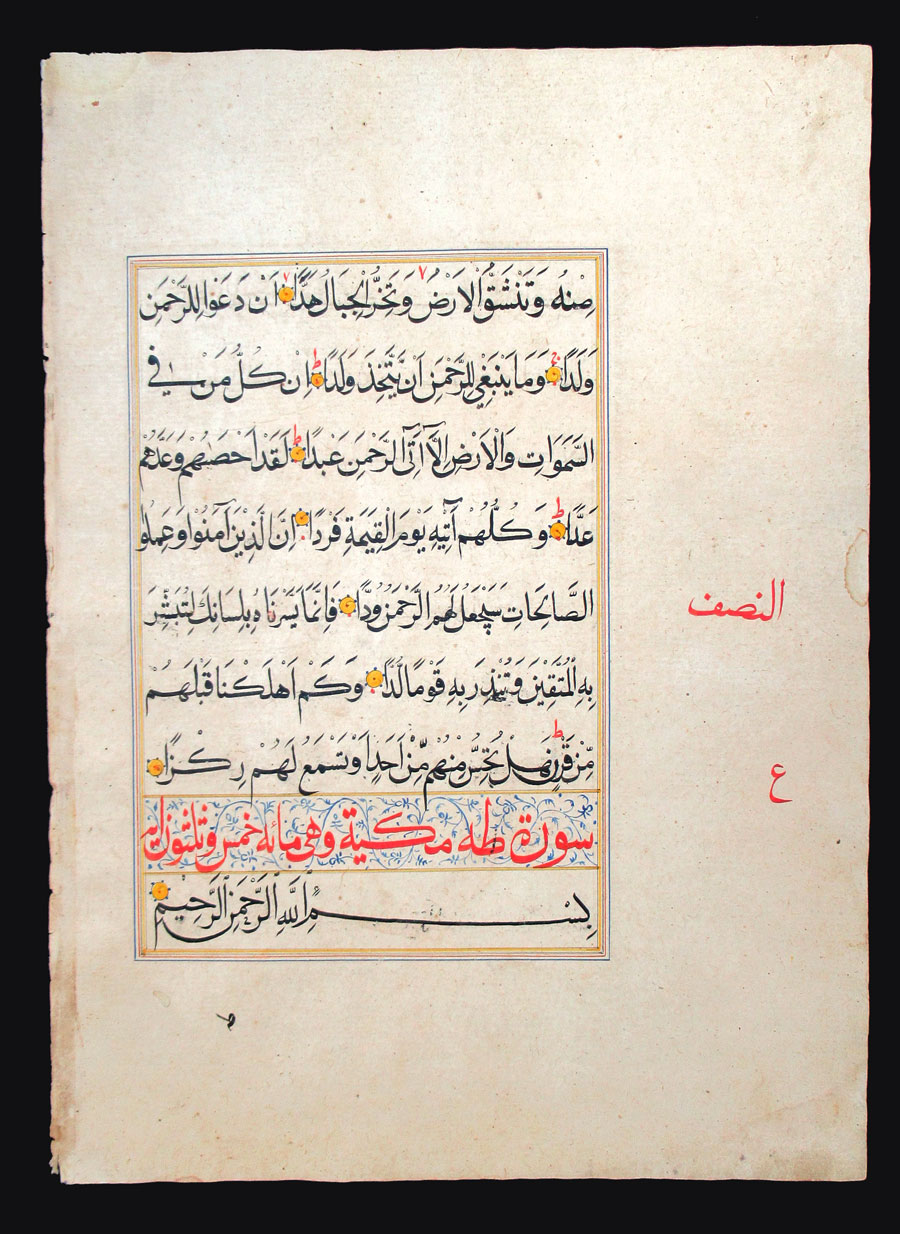 مِنْهُ وَتَنْشَقُّ الْاَرْضُ وَتَخِرُّ الْجِبَالُ هَدًّا اَنْ دَعَوْا لِلرَّحْمٰنِ
وَلَدًا وَمَا يَنْبَغِي لِلرَّحْمٰنِ اَنْ يَّتَّخِذَ وَلَدًا اِنْ كُلُّ مَنْ فِي
السَّمَوَاتِ وَالْاَرْضِ اِلَّآ اٰتِي الرَّحْمٰنِ عَبْدًا لَقَدْ اَحْصٰىهُمْ وَعَدَّهُمْ
عَدًّا وَكُلُّهُمْ اٰتِيْهِ يَوْمَ الْقِيٰمَةِ فَرْدًا اِنَّ الَّذِيْنَ اٰمَنُوْا وَعَمِلُوا
الصَّالِحَاتِ سَيَجْعَلُ لَهُمُ الرَّحْمٰنُ وُدًّا فَاِنَّمَا يَسَّرْنَاهُ بِلِسَانِكَ لِتُبَشِّرَ
النصف
بِهِ الْمُتَّقِيْنَ وَتُنْذِرَ بِهٖ قَوْمًا لُّدًّا وَكَمْ اَهْلَكْنَا قَبْلَهُمْ
مِّنْ قَرْنٍ هَلْ تُحِسُّ مِنْهُمْ مِّنْ اَحَدٍ اَوْ تَسْمَعُ لَهُمْ رِكْزًا
ع
سورة طه مكية وهى مائه خمس وثلثون اية
بِسْمِ اللّٰهِ الرَّحْمٰنِ الرَّحِيْمِ